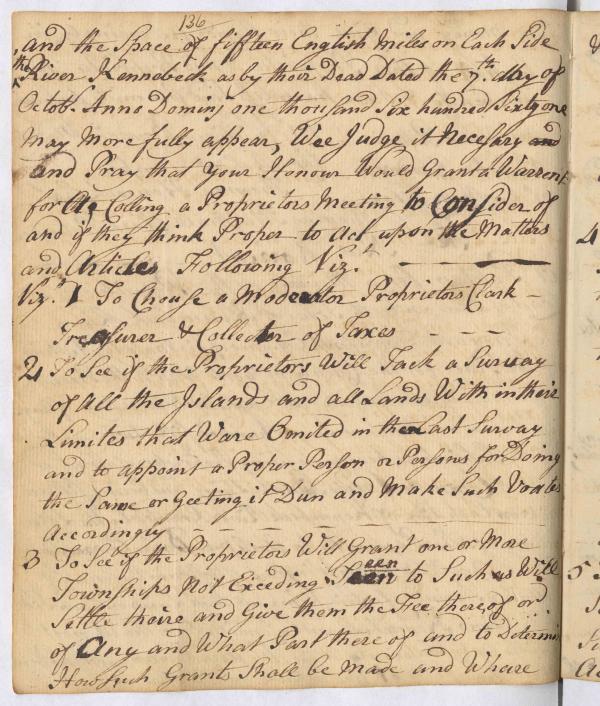 136
and the Space of fifteen English Miles on Each Side
the River Kennebeck as by thoir Dead Dated the 7th. day of
Octobr. Anno Dominj one thousand Six hundred Sixty one
may More fully appear, Wee Judge it Necesary and
and Pray that Your Honour Would Grant a Warrent
for a Colling a Proprietors Meeting to Consider of
and if they think Proper to Act upon the Matters
and Articles Following Viz.t
Viz.t 1 To Chouse a Moderator Proprietors Clark
Treasurer & Collector of Taxes
2 To See if the Proprietors Will Tack a Survay
of All the Jslands and all Lands With in their
Limites that Ware Omited in the Last Survay
and to appoint a Proper Person or Persons for Doing
the Same or Geeting it Dun and Make Such Voates
Accordingly
3 To See if the Proprietors Will Grant one or More
Townships Not Exceding een to Such as Will
Settle thoire and Give them the Fee there of or
of Any and What Part there of and to Determin
How such Grants Shall be Made and Whare
4
5